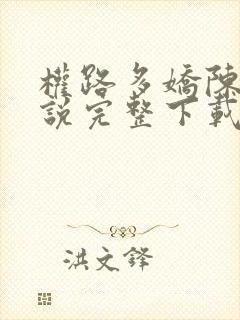 權路多嬌陳
說完整下載
洪文鋒